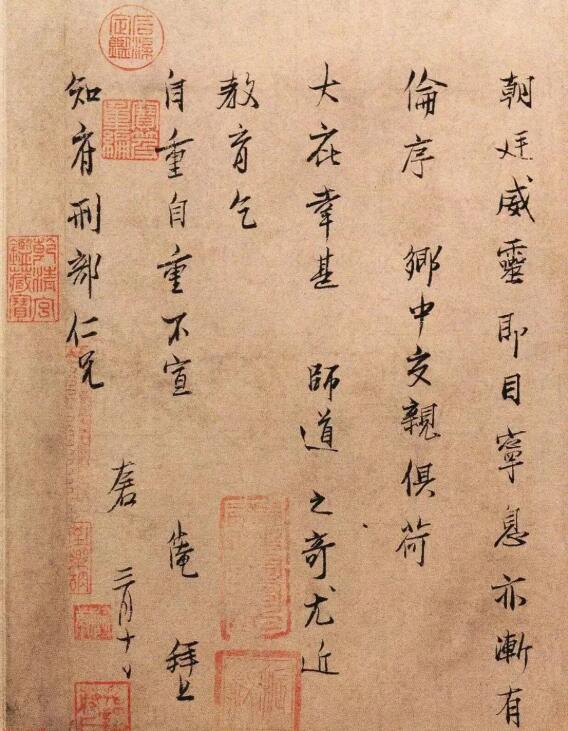 朝廷威靈即目寧息亦漸有
倫序 鄉中交親俱荷
大庇幸甚 師道之奇尤近
教育乞
自重自重不宣 仲淹 拜上
知府刑部仁兄 左右 三月十日
石渠定鑑
寶笈重編
乾清宮鑑藏寶